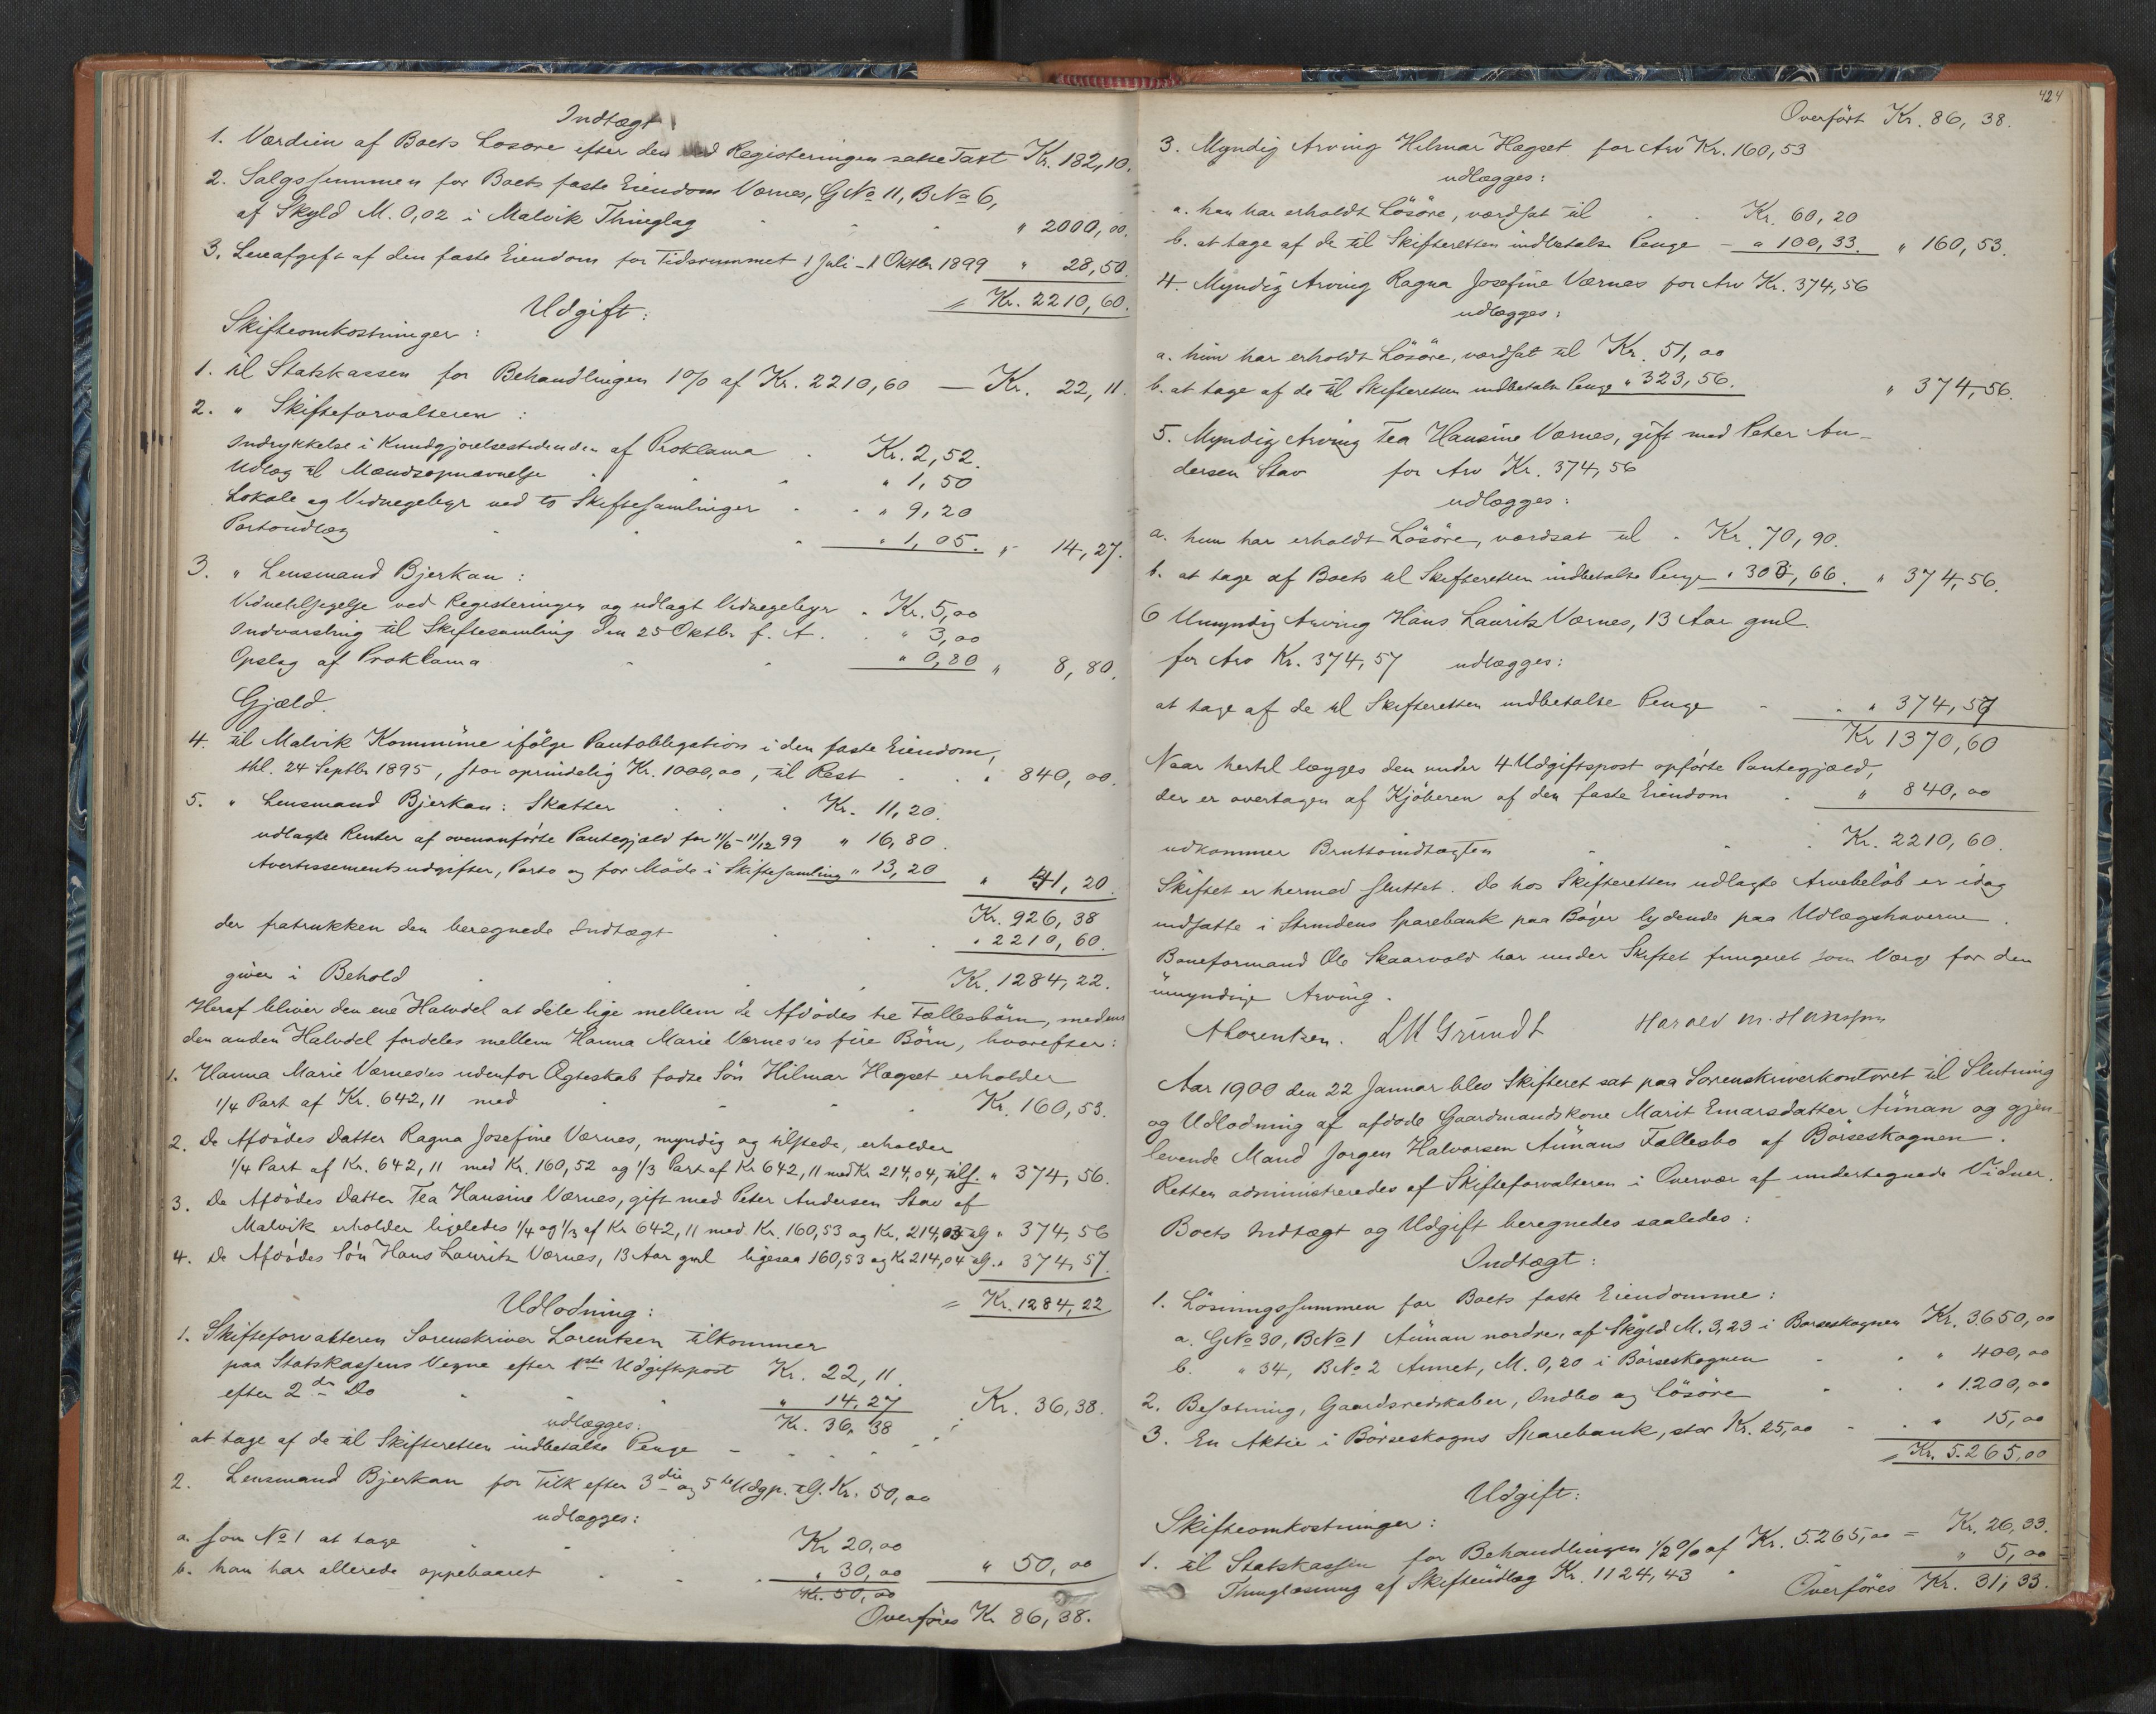 Indtægt
1. Værdien af Boets Løsøre efter den ved Registeringen satte Taxt Kr. 182,10.
2. Salgssummen for Boets faste Eiendom Værnes, G No 11, B No 6,
af Skyld M. 0,02 i Malvik Thinglag " 2000,00.
3. Leieafgift af den faste Eiendom for Tidsrummet 1 Juli - 1 Oktbr 1899 " 28,50.
= Kr. 2210,60.
Udgift:
Skifteomkostninger:
1. til Statskassen for Behandlingen 1% af Kr. 2210,60 — Kr. 22,11.
2. " Skifteforvalteren:
Indrykkelse i Kundgjørelsestidenden af Proklama . Kr. 2,52.
Udlæg til Mændsopnævnelse " 1,50
Lokale og Vidnegebyr ved to Skiftesamlinger " 9,20
Portoudlæg " 1,05. " 14,27.
3. " Lensmand Bjerkan:
Vidnetilsigelse ved Registeringen og udlagt Vidnegebyr . Kr. 5,00
Indvarsling til Skiftesamling den 25 Oktbr f. A. " 3,00
Opslag af Proklama " 0,80 " 8,80.
Gjæld.
4. til Malvik Kommune ifølge Pantobligation i den faste Eiendom,
thl. 24 Septbr 1895, stor oprindelig Kr. 1000,00, til Rest " 840,00.
5. " Lensmand Bjerkan: Skatter Kr. 11,20.
udlagte Renter af ovenanførte Pantegjæld for 11/6 - 11/12 99 " 16,80.
Avertissementsudgifter, Porto og for Møde i Skiftesamling " 13,20 " 41,20.
Kr. 926,38
der fratrukken den beregnede Indtægt " 2210,60.
giver i Behold Kr. 1284,22.
Heraf bliver den ene Halvdel at dele lige mellem de Afdødes tre Fællesbørn, medens
den anden Halvdel fordeles mellem Hanna Marie Værnes'es fire Børn, hvorefter:
1. Hanna Marie Værnes'es udenfor Ægteskab fødte Søn Hilmar Hægset erholder
1/4 Part af Kr. 642,11 med Kr. 160,53.
2. De Afdødes Datter Ragna Josefine Værnes, myndig og tilstede, erholder
1/4 Part af Kr. 642,11 med Kr. 160,52 og 1/3 Part af Kr 642,11 med Kr 214,04, tils. " 374,56.
3. De Afdødes Datter Tea Hansine Værnes, gift med Peter Andersen Stav af
Malvik erholder ligeledes 1/4 og 1/3 af Kr 642,11 med Kr. 160,53 og Kr. 214,03 tils " 374,56
4. De Afdødes Søn Hans Lauritz Værnes, 13 Aar gml ligesaa 160,53 og Kr 214,04 tils. " 374,57.
= Kr. 1284,22
Udlodning:
1. Skifteforvalteren Sorenskriver Lorentzen tilkommer
paa Statskassens Vegne efter 1ste Udgiftspost Kr. 22,11.
efter 2den Do " 14,27
Kr. 36,38
udlægges:
at tage af de til Skifteretten indbetalte Penge Kr. 36,38.
2. Lensmand Bjerkan for Tilk efter 3die og 5te Udgp. tils. Kr. 50,00
udlægges:
a. som No 1 at tage Kr 20,00
b. han har allerede oppebaaret " 30,00 " 50,00
Kr. 50,00
Overføres Kr 86,38.
424
Overført Kr. 86,38.
3. Myndig Arving Hilmar Hægset for Arv Kr. 160,53
udlægges:
a. han har erholdt Løsøre, værdsat til Kr. 60,20
b. at tage af de til Skifteretten indbetalte Penge - " 100,33. " 160,53.
4. Myndig Arving Ragna Josefine Værnes for Arv Kr. 374,56
udlægges:
a. hun har erholdt Løsøre, værdsat til Kr. 51,00
b. at tage af de til Skifteretten indbetalte Penge " 323,56. " 374,56.
5. Myndig Arving Tea Hansine Værnes, gift med Peter An-
dersen Stav for Arv Kr. 374,56
udlægges:
a. hun har erholdt Løsøre, værdsat til . Kr. 70,90.
b. at tage af Boets til Skifteretten indbetalte Penge " 303,66. " 374,56.
6 Umyndig Arving Hans Lauritz Værnes, 13 Aar gml.
for Arv Kr. 374,57 udlægges:
at tage af de til Skifteretten indbetalte Penge " 374,57
Kr 1370,60
Naar hertil lægges den under 4 Udgiftspost opførte Pantegjæld,
der er overtagen af Kjøberen af den faste Eiendom " 840,00
udkommer Bruttoindtægten Kr. 2210,60.
Skiftet er hermed sluttet. De hos Skifteretten udlagte Arvebeløb er idag
indsatte i Strindens Sparebank paa Bøger lydende paa Udlægshaverne.
Boneformand Ole Skaarvold har under Skiftet fungeret som Værge for den
umyndige Arving.
A Lorentzen. LM Grundt Harald M. Hansson
Aar 1900 den 22 Januar blev Skifteret sat paa Sorenskriverkontoret til Slutning
og Udlodning af afdøde Gaardmandskone Marit Einarsdatter Aunan og gjen-
levende Mand Jørgen Halvorsen Aunans Fællesbo af Børseskognen.
Retten administreredes af Skifteforvalteren i Overvær af undertegnede Vidner.
Boets Indtægt og Udgift beregnedes saaledes:
Indtægt:
1. Løsningssummen for Boets faste Eiendomme:
a. G No 30, B No 1 Aunan nordre, af Skyld M. 3,23 i Børseskognen Kr. 3650,00
b. " 34, B No 2 Aunet, M. 0,20 i Børseskognen " 400,00
2. Besætning, Gaardsredskaber, Indbo og Løsøre " 1200,00
3. En Aktie i Børseskogns Sparebank, stor Kr. 25,00 " 15,00
= Kr. 5265,00
Udgift:
Skifteomkostninger:
1. til Statskassen for Behandlingen 1/2% af Kr. 5265,00 = Kr. 26,33.
Thinglæsning af Skifteudlæg Kr. 1124,43 " 5,00
Overføres Kr. 31,33.